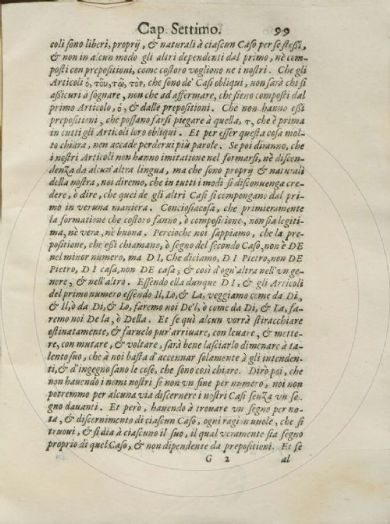 Cap. Settimo. 99
coli sono liberi, proprij, & naturali à ciascun Caso per se stessi,
& non in alcun modo gli altri dependenti dal primo, nè com-
posti con prepositioni, come costoro vogliono ne i nostri. Che gli
Articoli ὁ, τοῦ, τῷ, τὸν, che sono de' Casi obliqui, non sarà chi si
assicuri a sognare, non che ad affermare, che sieno composti dal
primo Articolo, ὁ, & dalle prepositioni. Che non hanno essi
prepositioni, che possano farsi piegare à quella, τ, che è prima
in tutti gli Articoli loro obliqui. Et per esser questa cosa mol-
to chiara, non accade perdervi più parole. Se poi diranno, che
i nostri Articoli non hanno imitatione nel formarsi, nè discen-
denza da alcun'altra lingua, ma che sono proprij & naturali
della nostra, noi diremo, che in tutti i modi si disconuenga cre-
dere, ò dire, che quei de gli altri Casi si compongano dal pri-
mo in veruna maniera. Conciosiacosa, che primieramente
la formatione che costoro fanno, ò compositione, non sia legiti-
ma, nè vera, nè buona. Percioche noi sappiamo, che la pre-
positione, che essi chiamano, ò segno del secondo Caso, non è DE
nel minor numero, ma DI, Che diciamo, DI Pietro, non DE
Pietro, DI casa, non DE casa, & così d'ogn'altra nell'vn ge-
nere, & nell'altro. Essendo ella dunque DI, & gli Articoli
del primo numero essendo Il, Lo, & La, veggiamo come da Di,
& Il, ò da Di, & Lo, faremo noi De'l, ò come da Di, & La, fa-
remo noi De la, ò Della. Et se quì alcun vorrà stiracchiare
ostinatamente, & faruelo pur'arriuare, con leuare, & mette-
re, con mutare, & voltare, sarà bene lasciarlo dimenare à ta-
lento suo, che à noi basta d'accennar solamente à gli intenden-
ti, & d'ingegno sano le cose, che sono così chiare. Dirò poi, che
non hauendo i nomi nostri se non vn fine per numero, noi non
potremmo per alcuna via discernere i nostri Casi senza vn se-
gno dauanti. Et però, hauendo à trouare vn segno per no-
ta, & discernimento di ciascun Caso, ogni ragion vuole, che si
truoui, & si dia à ciascuno il suo, il qual veramente sia segno
proprio di quel Caso, & non dipendente da prepositioni. Et se
G 2 al